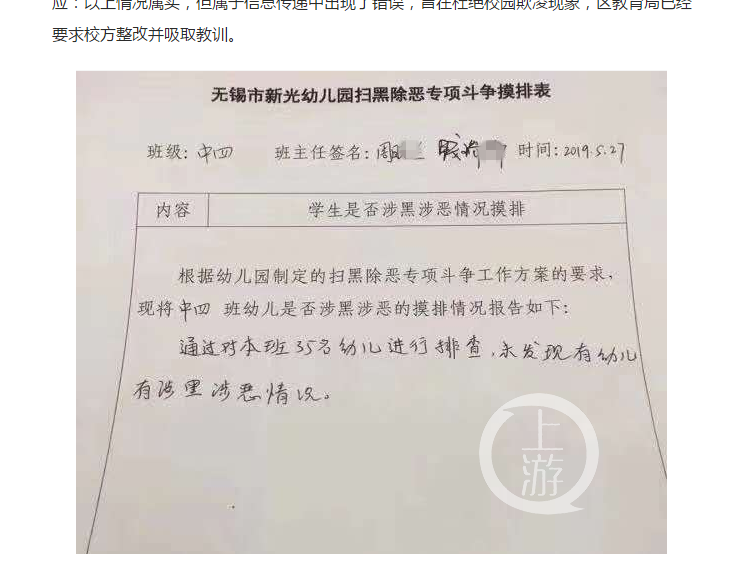 应：以上情况属实，但属于信息传递中出现了错误，旨在杜绝校园欺凌现象，区教育局已经
要求校方整改并吸取教训。
无锡市新光幼儿园扫黑除恶专项斗争摸排表
班级：中四 班主任签名：周 时间：2019.5.27
内容 学生是否涉黑涉恶情况摸排
根据幼儿园制定的扫黑除恶专项斗争工作方案的要求，
现将中四 班幼儿是否涉黑涉恶的摸排情况报告如下：
通过对本班35名幼儿进行排查，未发现有幼儿
有涉黑涉恶情况。
上游